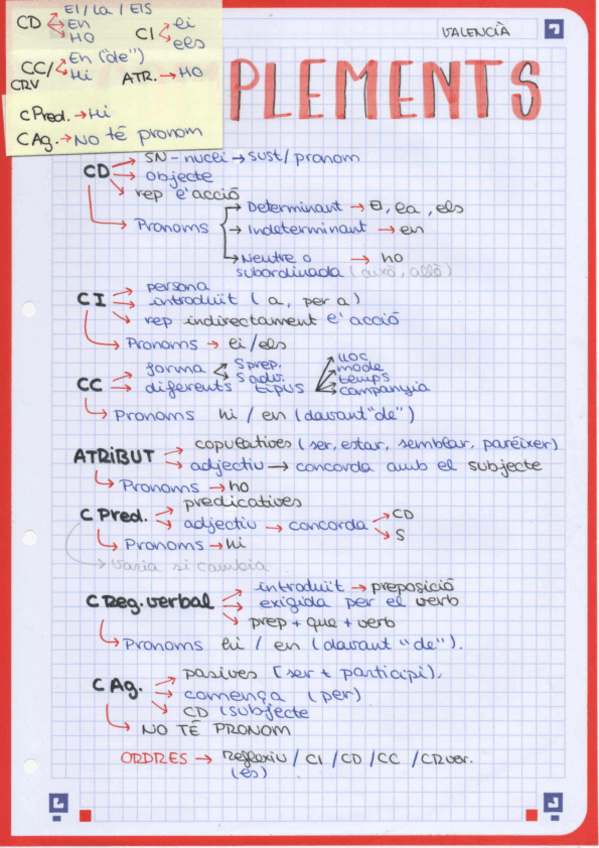 CD → El / La / Els
→ En
→ HO
CI → li
→ els
CC/CRV → En ("de")
→ Hi
ATR. → HO
CPred. → Hi
CAg. → NO TÉ pronom
VALENCIÀ
PLEMENTS
CD → SN - nucli → sust/pronom
→ objecte
→ rep l'acció
→ Pronoms → Determinant → el, la, els
→ Indeterminant → en
→ Neutre o subordinada → ho
(això, allò)
CI → persona
→ introduït (a, per a)
→ rep indirectament l'acció
→ Pronoms → li/els
CC → forma < S prep.
S adv.
→ diferents tipus → lloc
→ mode
→ temps
→ companyia
→ Pronoms hi / en (davant "de")
ATRIBUT → copulatives (ser, estar, semblar, paréixer)
→ adjectiu → concorda amb el subjecte
→ Pronoms → ho
C Pred. → predicatives
→ adjectiu → concorda → CD
→ S
→ Pronoms → hi
→ Varia si cambia
C Reg. verbal → introduït → preposició
→ exigida per el verb
→ prep + que + verb
→ Pronoms hi / en (davant "de").
C Ag. → pasives [ser + participi).
→ comença (per)
→ CD (subjecte
→ NO TÉ PRONOM
ORDRES → Reflexiu / CI / CD / CC / CRver.
(es)